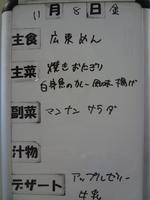 11月8日金
主食 広東めん
主菜 焼きおにぎり
白身魚のカレー風味揚げ
副菜 マンナンサラダ
汁物
デザート アップルゼリー
牛乳